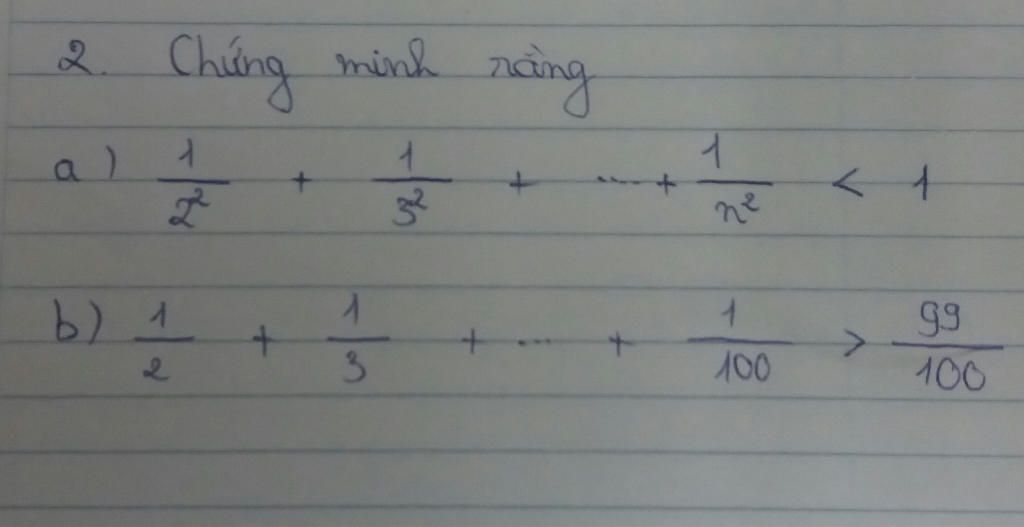 2. Chứng minh rằng
a) 1/2² + 1/3² + ....+ 1/n² < 1
b) 1/2 + 1/3 + ... + 1/100 > 99/100